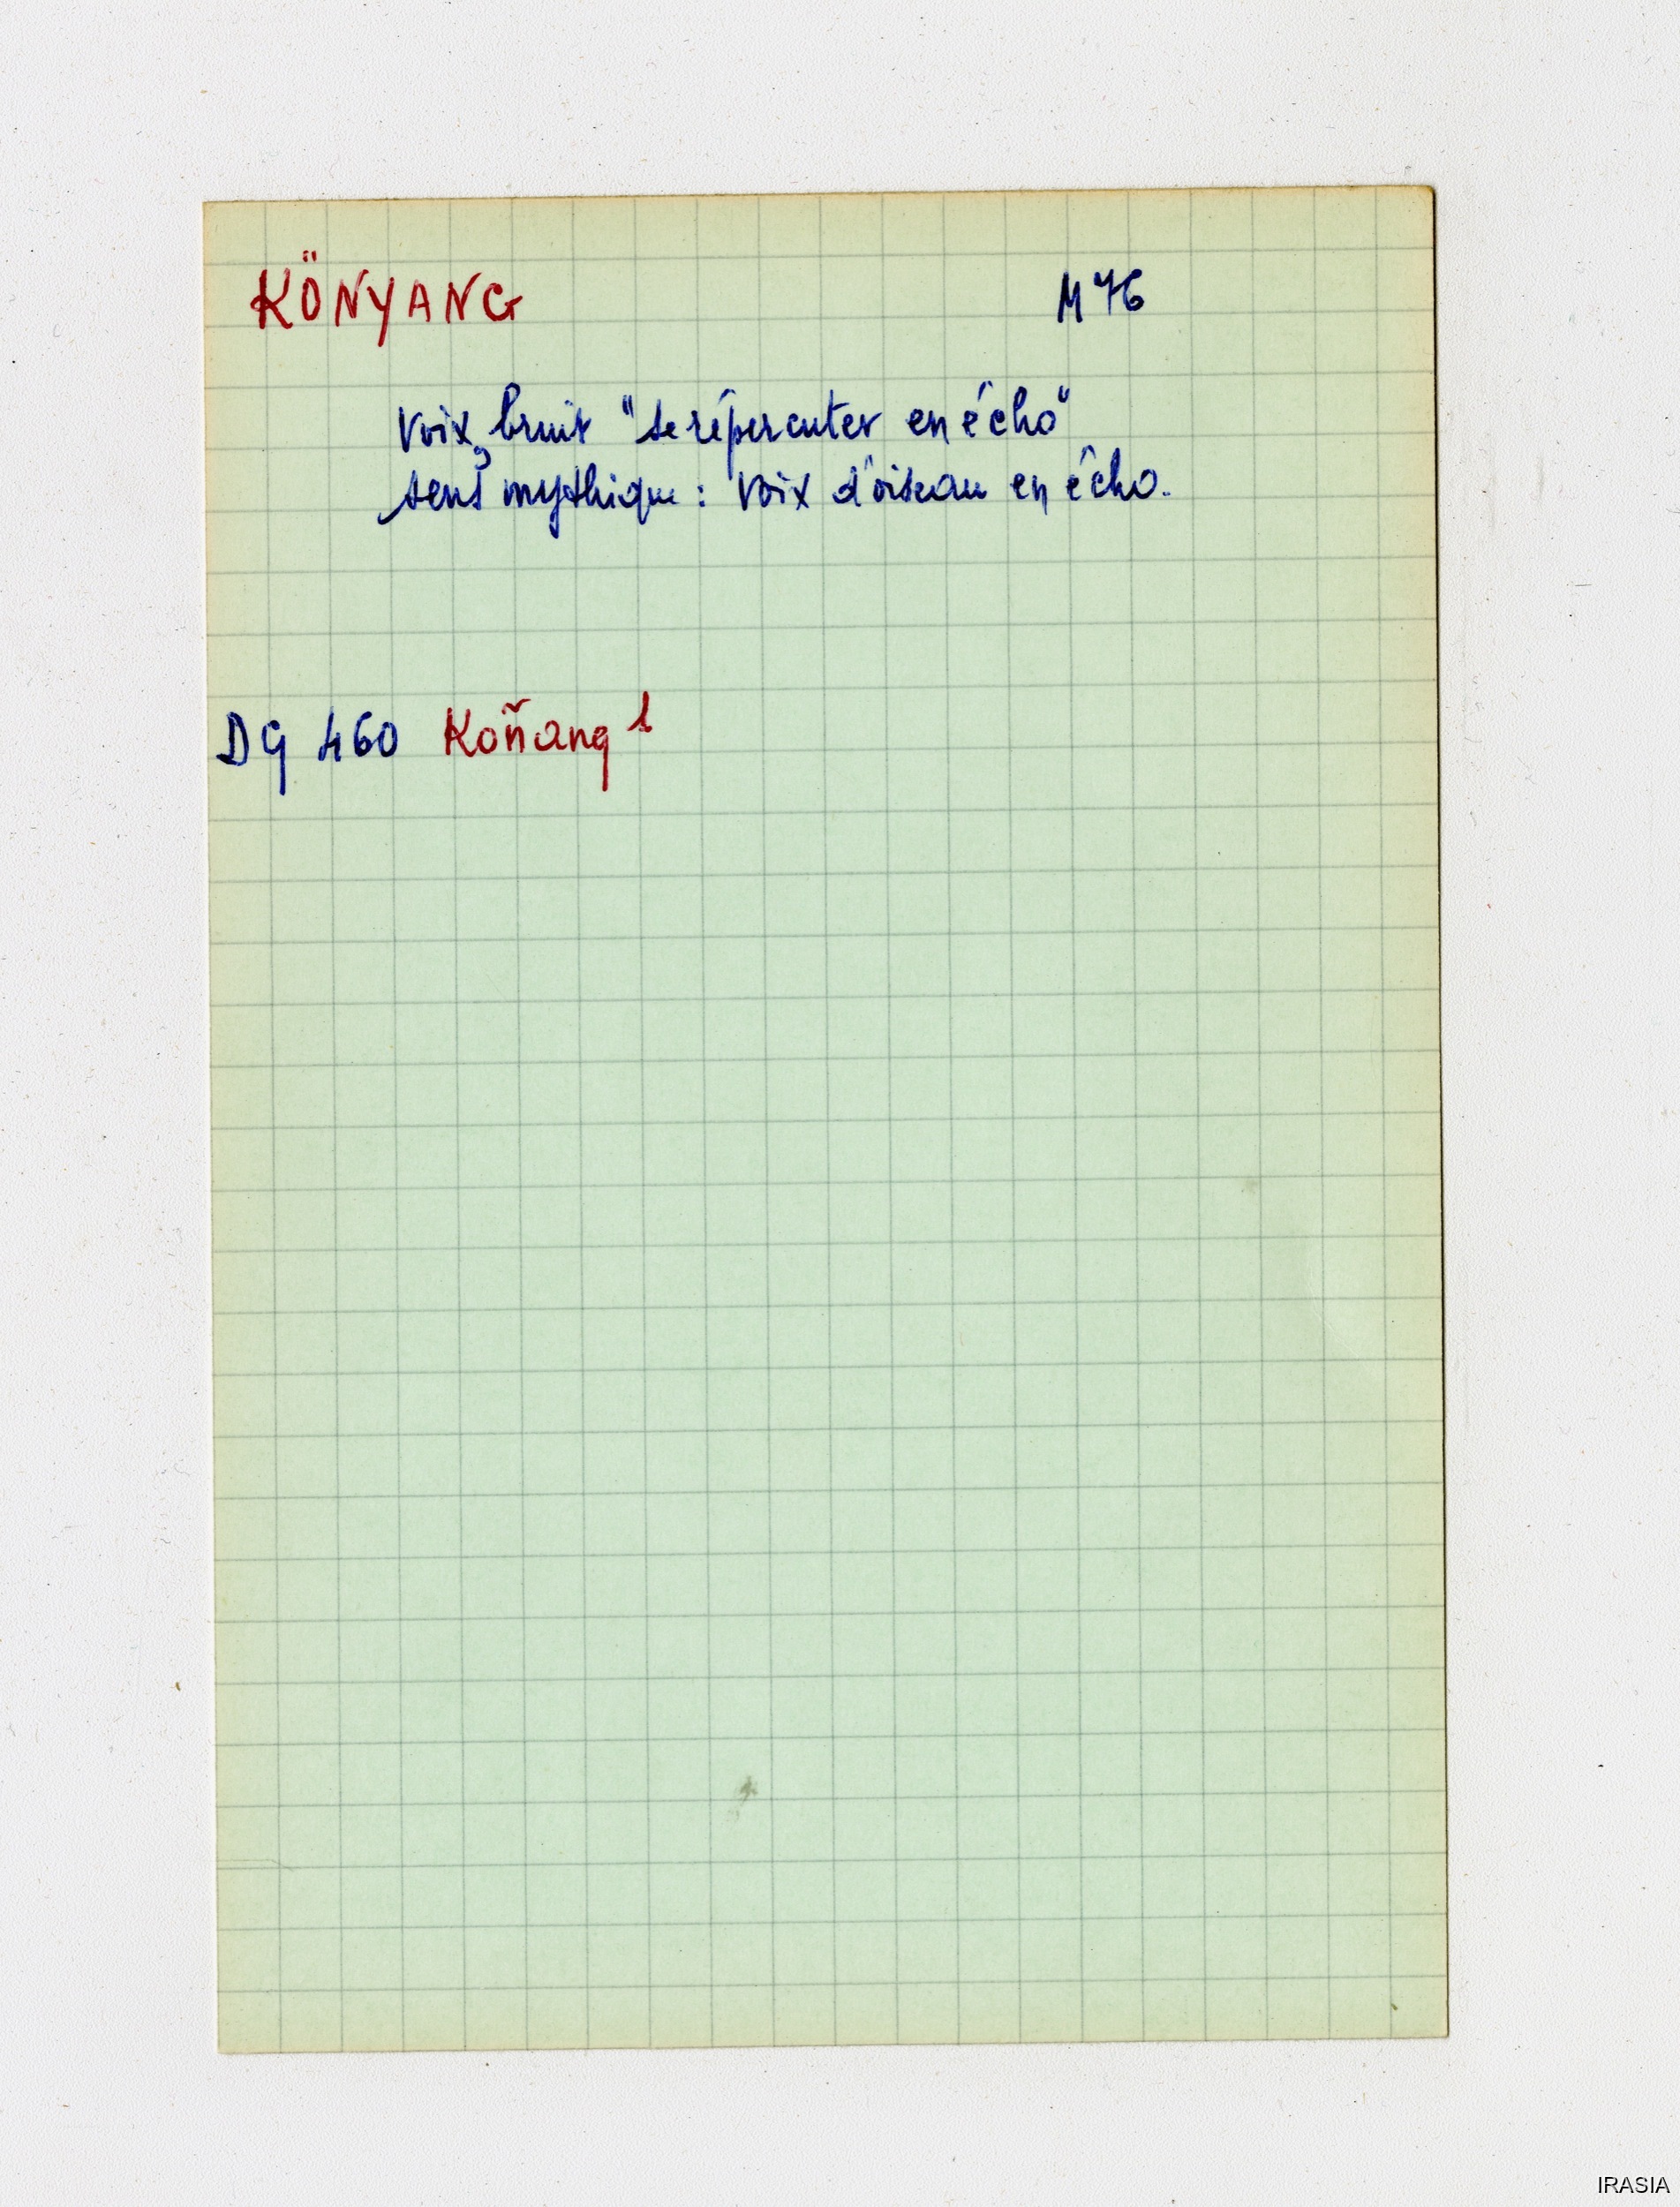 KÖNYANG M 76
Voix, bruit "se répercuter en écho"
sens mythique : Voix d'oiseau en écho.
DG 460 Koñang 1
IRASIA